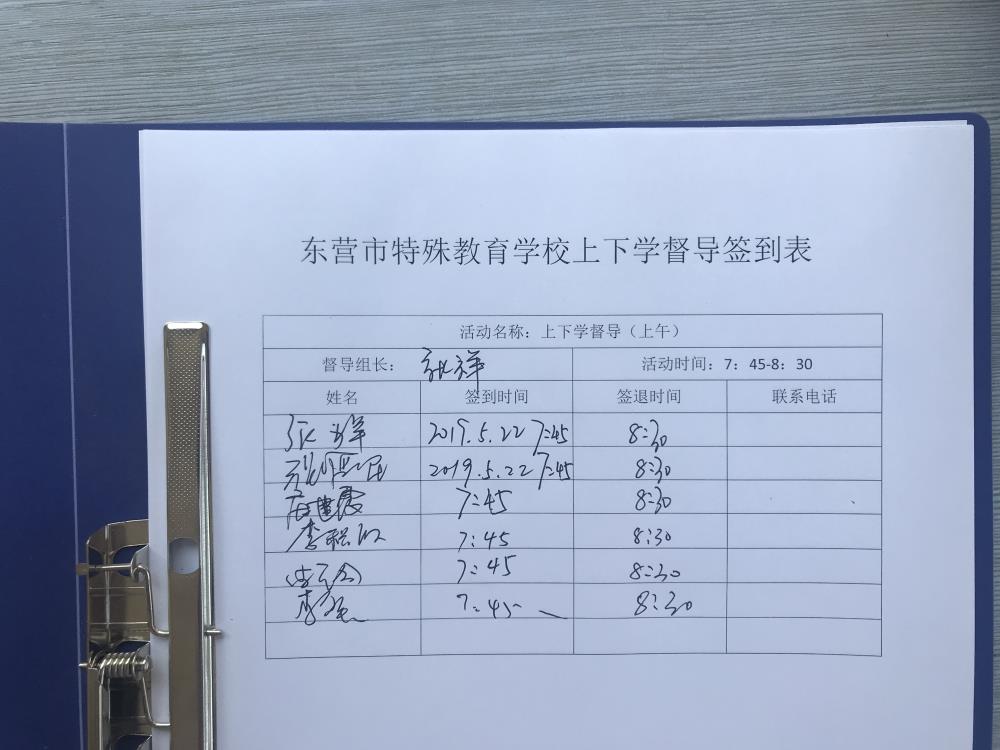 东营市特殊教育学校上下学督导签到表
活动名称：上下学督导（上午）
督导组长： 张祥 活动时间：7：45-8：30
姓名 签到时间 签退时间 联系电话
张祥 2019.5.22 7:45 8:30
2019.5.22 7:45 8:30
7:45 8:30
李 7:45 8:30
7:45 8:30
李 7:45 8:30